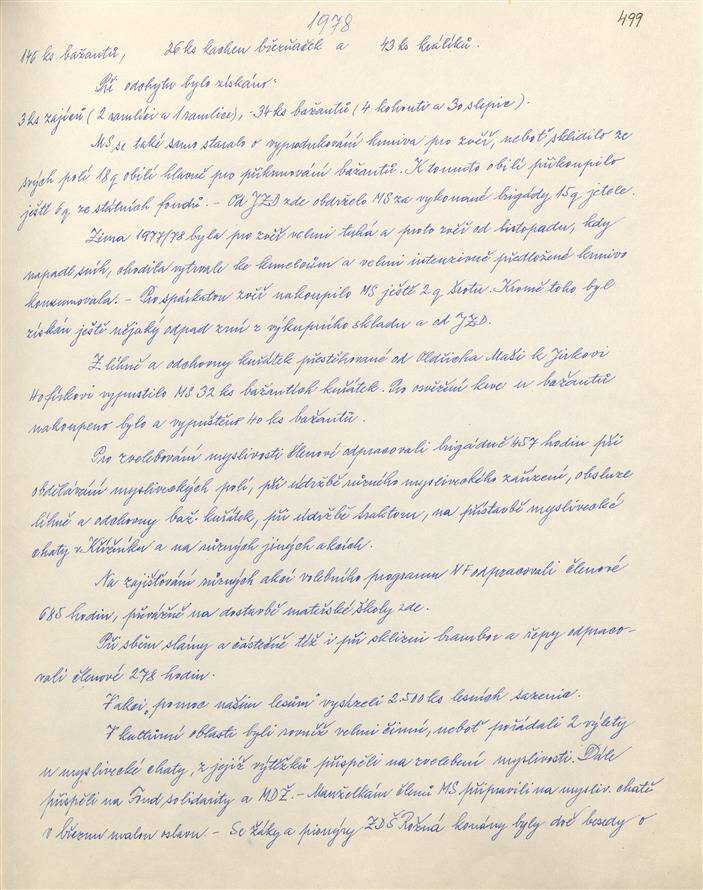 1978
499
146 ks bažantů, 26 ks kachen březňaček a 43 ks králíků.
Při odchytu bylo získáno:
3 ks zajíců (2 ramlíci a 1 ramlice), - 34 ks bažantů (4 kohouti a 30 slepic).
MS se také samo staralo o vyprodukování krmiva pro zvěř, neboť sklidilo ze
svých polí 18 q obilí hlavně pro přikrmování bažantů. K tomuto obilí přikoupilo
ještě 6 q ze státních fondů. - Od JZD zde obdrželo MS za vykonané brigády 15 q jetele.
Zima 1977/78 byla pro zvěř velmi tuhá a proto zvěř od listopadu, kdy
napadl sníh, chodila vytrvale ke krmelcům a velmi intenzivně předložené krmivo
konzumovala. - Pro spárkatou zvěř nakoupilo MS ještě 2 q šrotu. Kromě toho byl
získán ještě nějaký odpad zrní z výkupního skladu a od JZD.
Z líhně a odchovny kuřátek přestěhované od Oldřicha Maši k Jirkovi
Hofírkovi vypustilo MS 32 ks bažantích kuřátek. Pro osvěžení krve u bažantů
nakoupeno bylo a vypuštěno 40 ks bažantů.
Pro zvelebování myslivosti členové odpracovali brigádně 457 hodin při
obdělávání mysliveckých polí, při údržbě různého mysliveckého zařízení, obsluze
líhně a odchovny baž. kuřátek, při údržbě traktoru, na přístavbě myslivecké
chaty v Kříženku a na různých jiných akcích.
Na zajišťování různých akcí volebního programu NF odpracovali členové
685 hodin, převážně na dostavbě mateřské školy zde.
Při sběru slámy a částečně též i při sklizni brambor a řepy odpraco-
vali členové 278 hodin.
V akci "pomoc našim lesům" vysázeli 2.500 ks lesních sazenic.
V kulturní oblasti byli rovněž velmi činní, neboť pořádali 2 výlety
u myslivecké chaty, z jejíž výtěžků přispěli na zvelebení myslivosti. Dále
přispěli na Fond solidarity a MDŽ. - Manželkám členů MS připravili na mysliv. chatě
v březnu malou oslavu - Se žáky a pionýry ZDŠ Rožná konány byly dvě besedy o